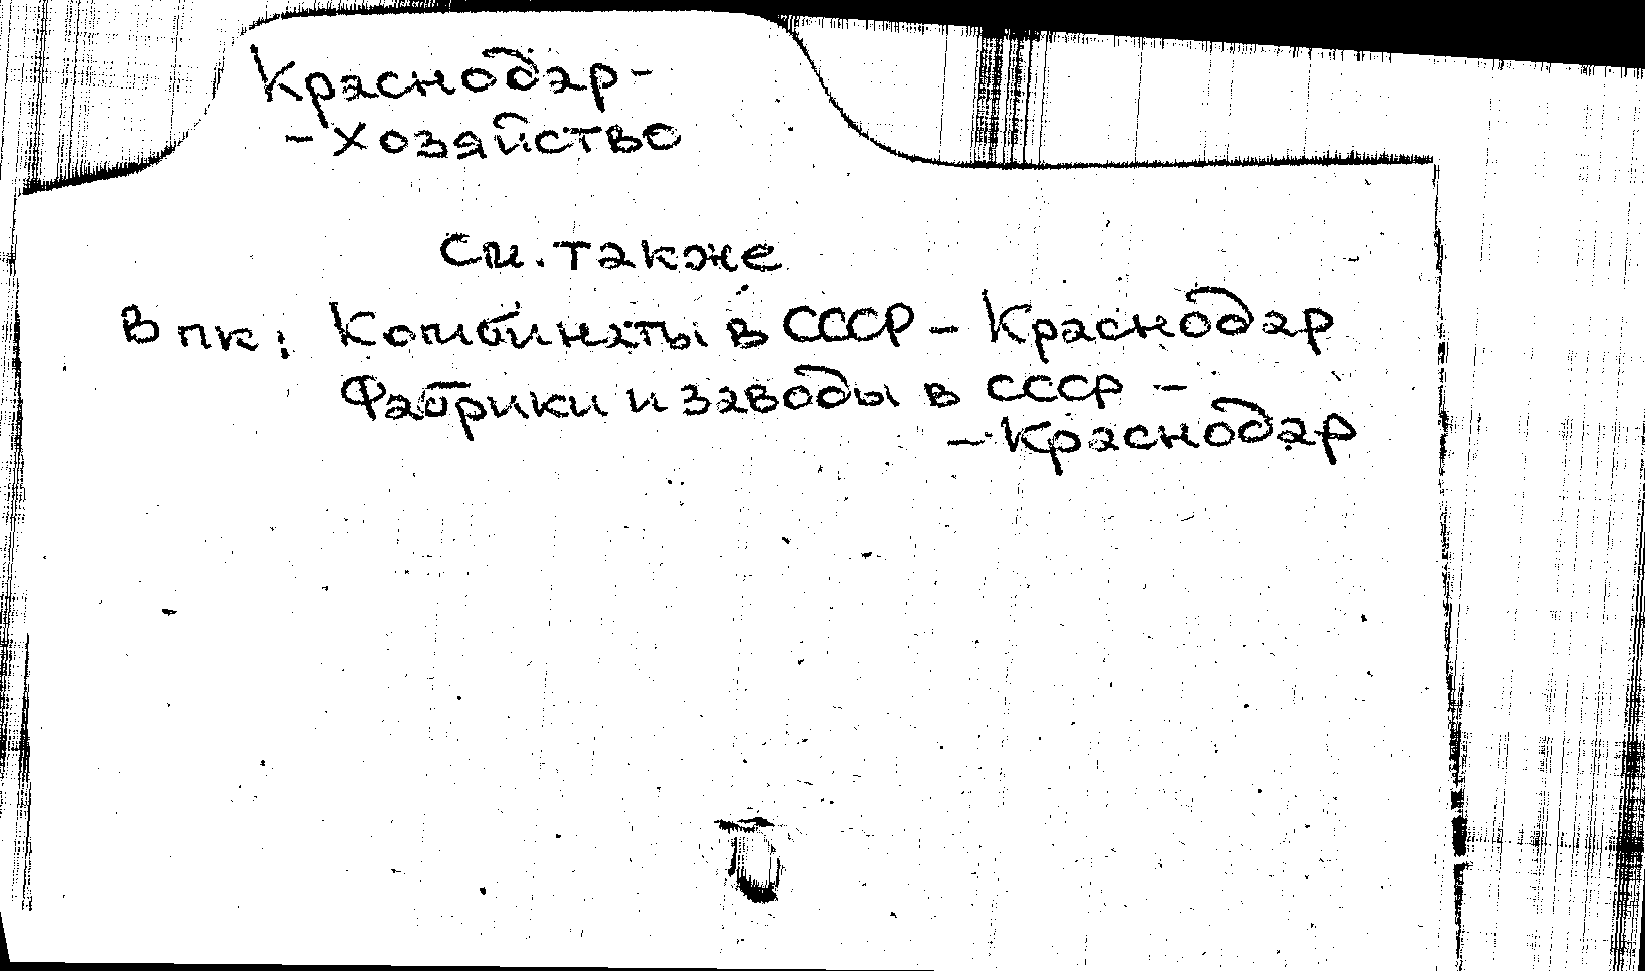 Краснодар-
-хозяйство
См. также
В пк: Комбинаты в СССР - Краснодар
Фабрики и заводы в СССР -
- Краснодар